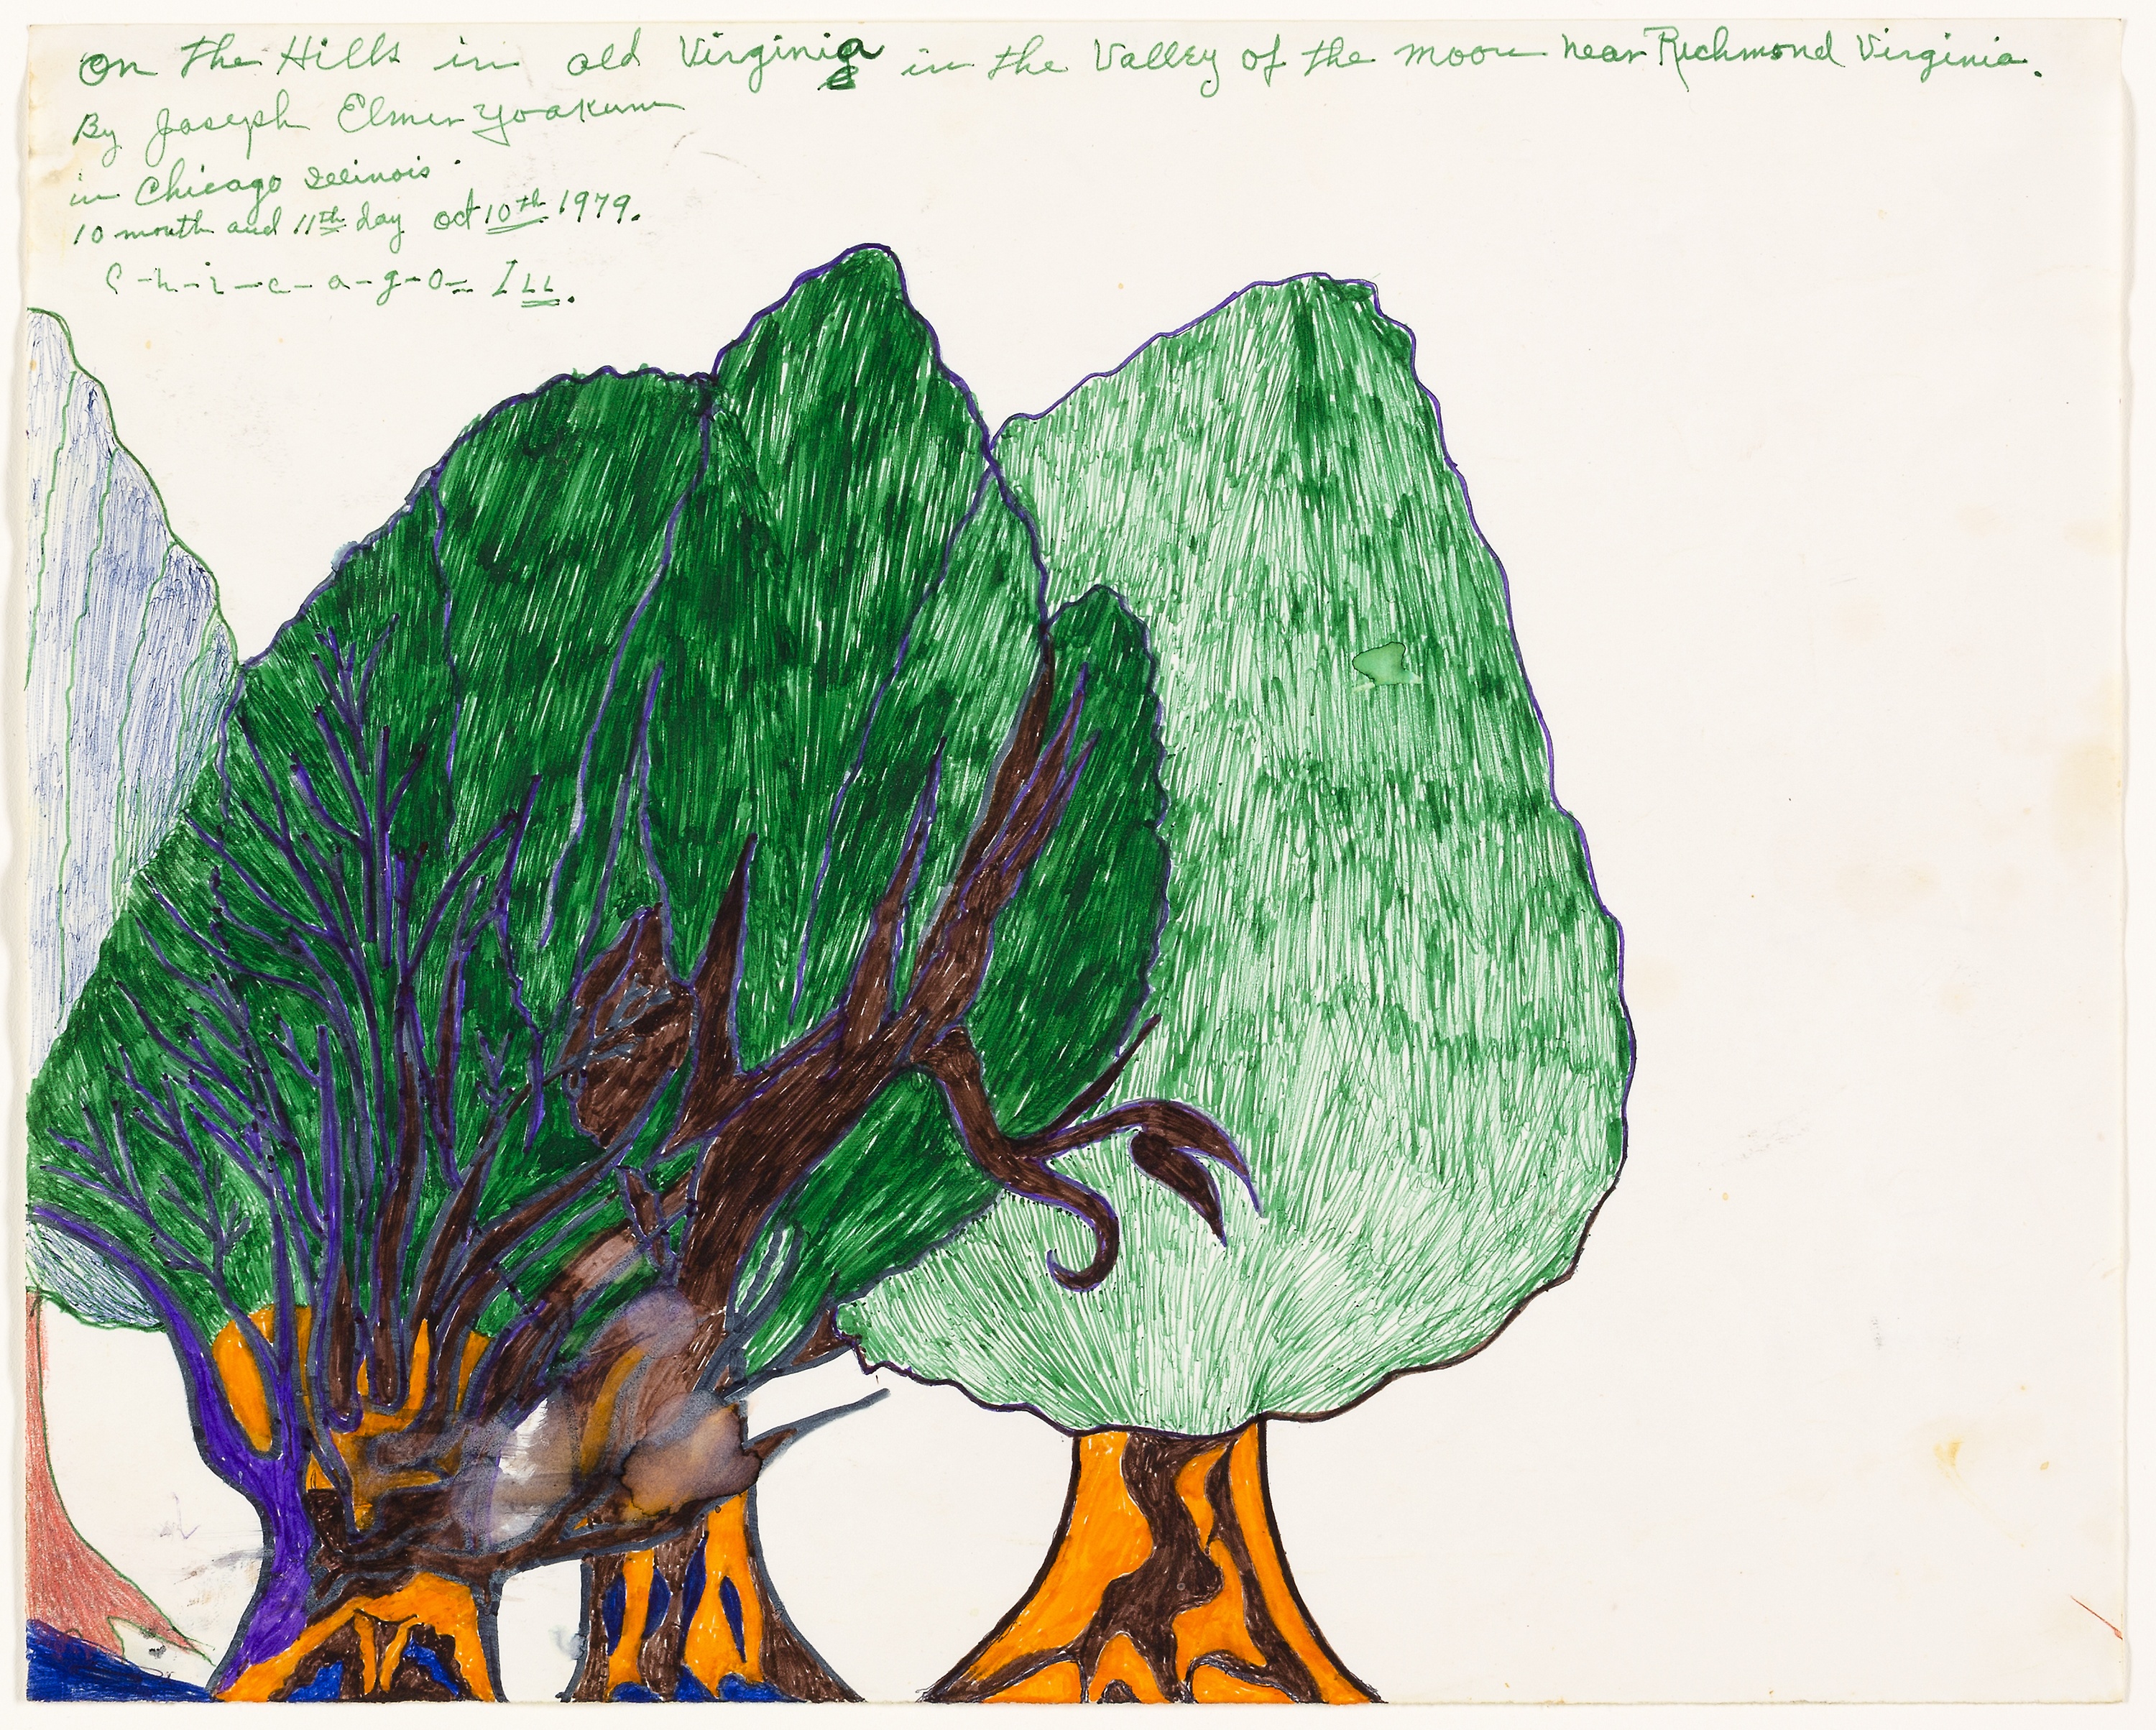 On the Hills in old Virginia in the Valley of the moon near Richmond Virginia.
By Joseph Elmer Yoakum
in Chicago Illinois.
10 month and 11th day oct 10th 1979.
C-h-i-c-a-g-o= ILL.